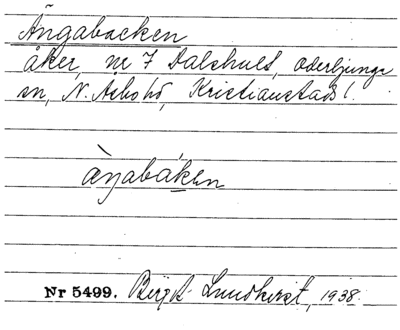 Ängabacken
åker, nr 7 Dalshult, Oderljunga
sn, N. Åsbo hd, Kristianstads l.
àŋabáken
Nr 5499. Birgit Lundkvist, 1938.